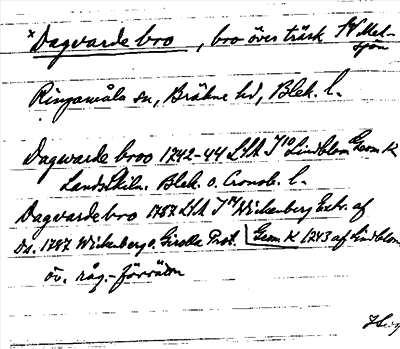 *Dagvarde bro, bro över träsk N Mel-
sjön
Ringamåla sn, Bräkne hd, Blek. l.
Dagwarde broo 1742-44 LSA J10 Lindblom Geom K
Landskiln. Blek. o. Cronob. l.
Dagvarde bro 1787 LSA J14 Wickenberg Extr. af
Do. 1787 Wickenberg o. Gisella Prot. Geom K 1743 af Lindblom
öv. råg.-förrättn